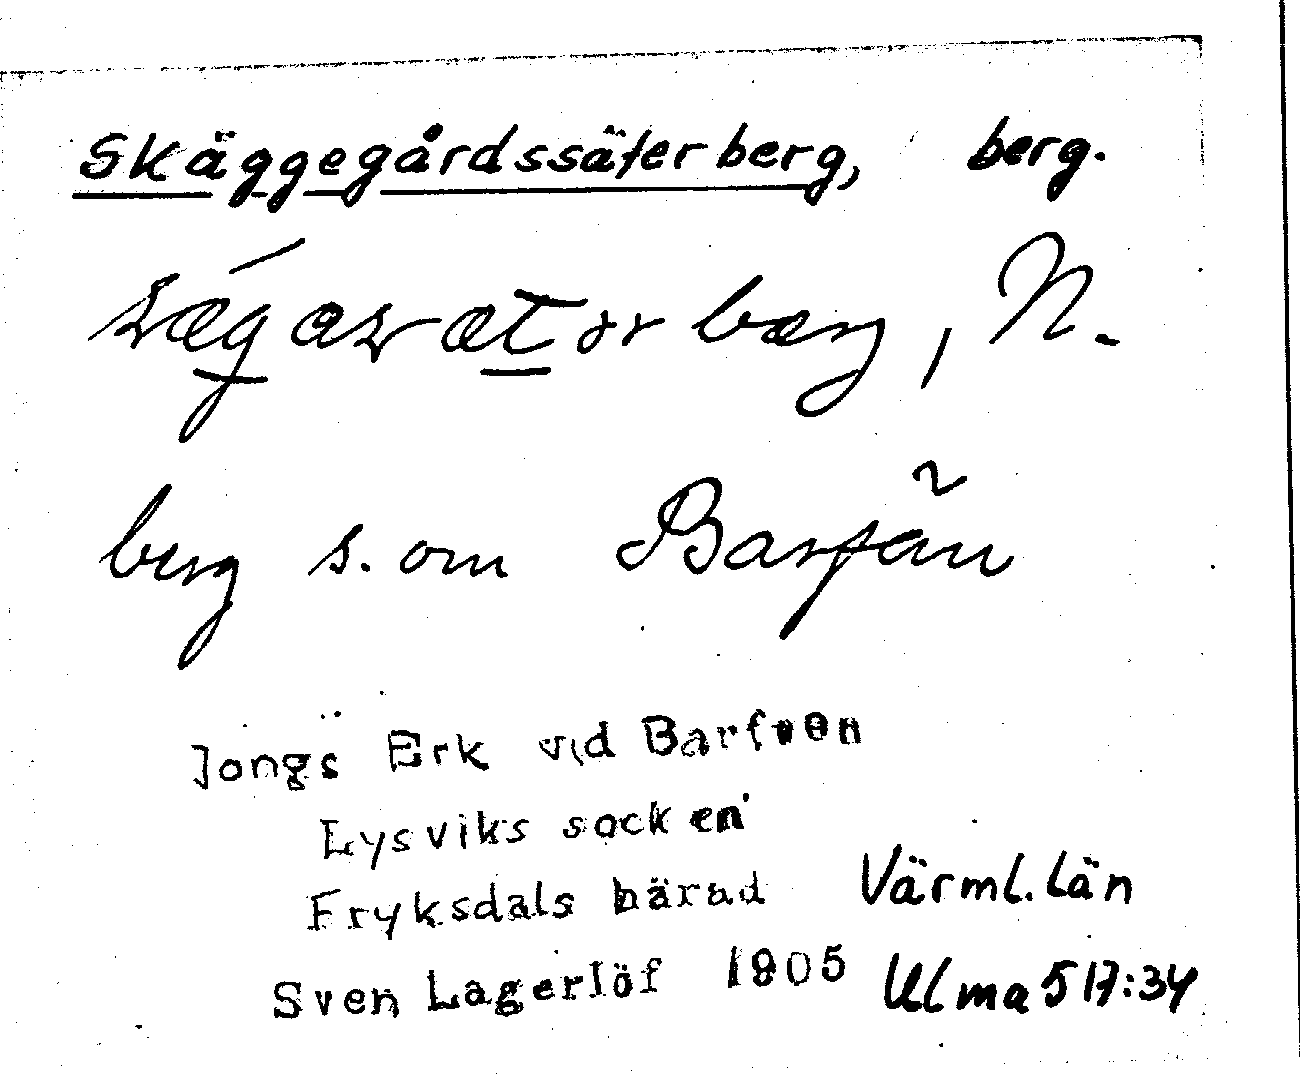 Skäggegårdssäterberg, berg.
bærg, N.
berg s. om Barfän
Jongs Erk vid Barfven
Lysviks socken
Fryksdals härad Värml. län
Sven Lagerlöf 1905 Ulma 517:34